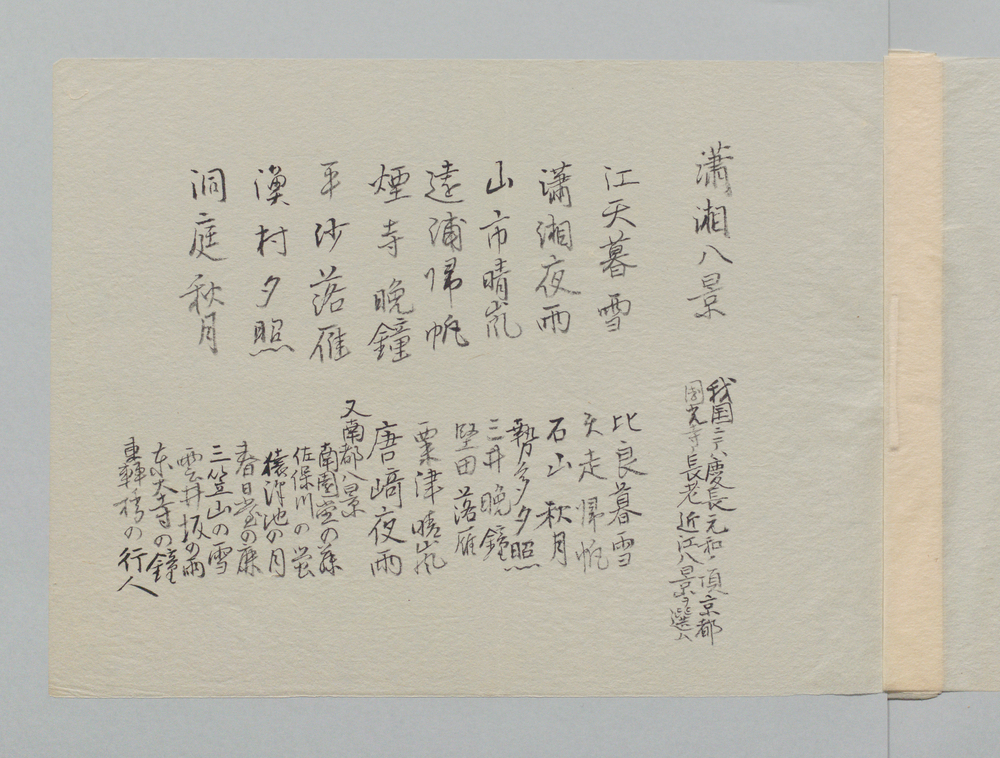 瀟湘八景
江天暮雪
瀟湘夜雨
山市晴嵐
遠浦帰帆
煙寺晩鐘
平沙落雁
漁村夕照
洞庭秋月
我国ニテハ慶長元和ノ頃京都
圓光寺長老近江八景ヲ選ム
比良暮雪
矢走帰帆
石山秋月
勢多夕照
三井晩鐘
堅田落雁
粟津晴嵐
唐﨑夜雨
又南都八景
南圓堂の藤
佐保川の蛍
猿沢池の月
春日野の鹿
三笠山の雪
雲井坂の雨
東大寺の鐘
轟橋の行人